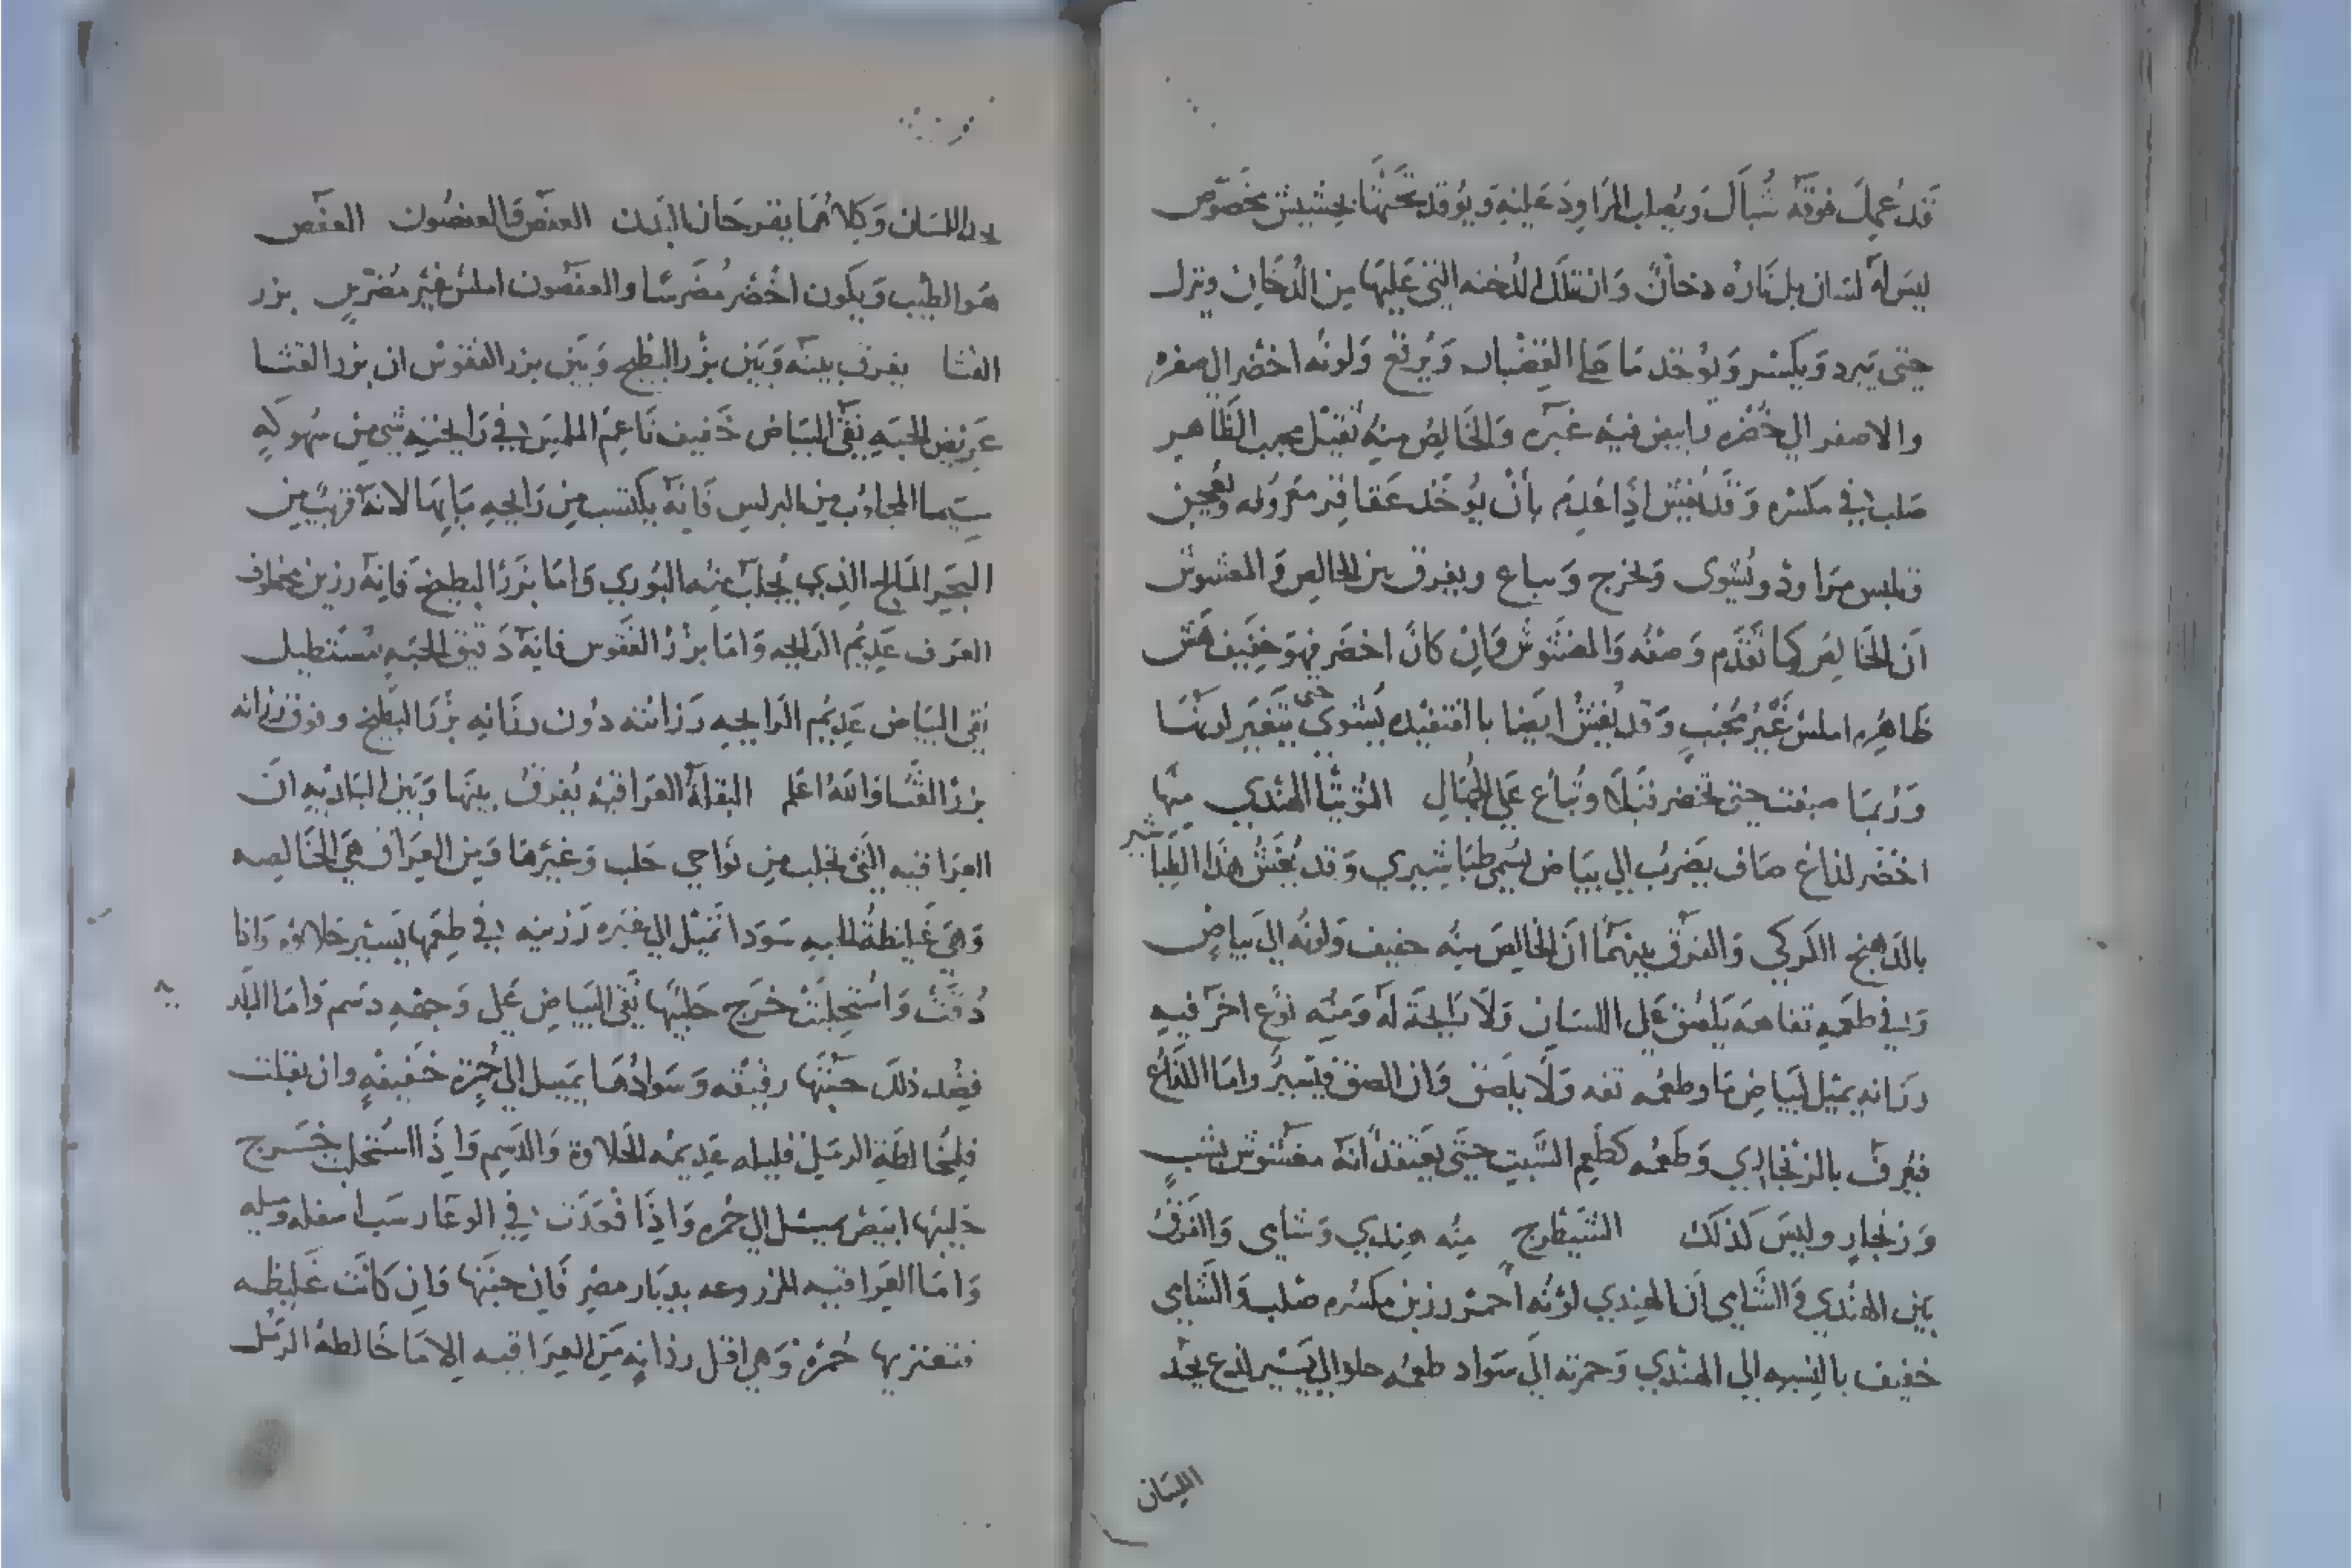 قد عمل فوقه شباك ويصلب المراود عليه ويوقد تحتها بحشيش مخصوص
ليس له لسان بل ناره دخان وان تتلك الدخنه التي عليها من الدخان وتترك
حتى يبرد ويكسر ويوخد ما على القضبان ويرفع ولونه اخضر الى صفره
والاصفر الي خضره رابيض فيه غبره والخالص منه ثقيل محبب الظاهر
صلب في مكسره وقد يغش اذا عدم بأن يوخد عقاقير معروفه وتعجن
وتلبس مراود وتشوى وتخرج وتباع ويفرق بين الخالص والمغشوش
أن الخالص كما تقدم وصفه والمغشوش وان كان اخضر فهو خفيف هش
ظاهره املس غير محبب وقد يغش ايضا با يشوي حتى يتغير لونها
وربما صبغت حتى تخضر وتباع على الجبال التوتيا الهندي منها
اخضر لذاع صاف يضرب الى بياض يسمى طباشيري وقد يغش هذا الطباشير
بالدهنج الكركي والفرق بينهما ان الخالص منه خفيف ولونه الى بياض
وفي طعمه تفاهه يلصق على اللسان ولا رايحة له ومنه نوع اخر فيه
رزانه يميل لبياض ما وطعمه تفه ولا يلصق وان الصق فيسير واما اللذاع
فيعرف بالزنجاري وطعمه كطعم الشب حتى يعتقد انه مغشوش بشب
وزنجار وليس كذلك الشيطرج منه هندي وشامي والفرق
بين الهندي والشامي أن الهندي لونه احمر رزين مكسره صلب والشامي
خفيف بالنسبه الى الهندي وحمرته الي سواد طعمه حلو الى يسير لذع يحد
اللسان
يحد اللسان وكلاهما يقرحان البدن العفص والعفصون العفص
هو الطيب ويكون اخضر مضرسا والعفصون املس غير مضرس بزر
القثا يفرق بينه وبين بزر البطيخ وبين بزر الفقوس ان بزر القثا
عريض الحبه نقي البياض خفيف ناعم الملمس في رايحته شي من سهوكه
سيما المجلوب من البرلس فانه يكتسب من رايحه مايها لانه قريب من
البحر المالح الذي يجلب منه البوري واما بزر البطيخ فانه رزين مخلوف
العرف عديم الرايحه واما بزر الفقوس فانه دقيق الحبه مستطيل
نقي البياض عديم الرايحه رزانته دون رزانه بزر البطيخ وفوق رزانه
بزر القثا والله اعلم البقلة العراقيه يفرق بينها وبين البلديه ان
العراقيه التي تجلب من نواحي حلب وغيرها ومن العراق هي الخالصه
وهي غليظة الحبه سودا تميل الى غبره رزينه في طعمها يسير حلاوه واذا
دقت واستحلبت خرج حليبها نقي البياض على وجهه دسم واما البلد
فضد ذلك حبتها رقيقه وسوادها يميل الى حمره خفيفه وان ثقلت
فلمخالطة الرمل قليله عديمه الحلاوة والدسم واذا استحلبت خرج
حليبها ابيض يميل الى حمره واذا في الوعا
واما العراقيه المزروعه بديار مصر فان حبتها وان كانت غليظه
فتعتريها حمره وهي اقل رزانه من العراقيه الا ما خالطه الرمل